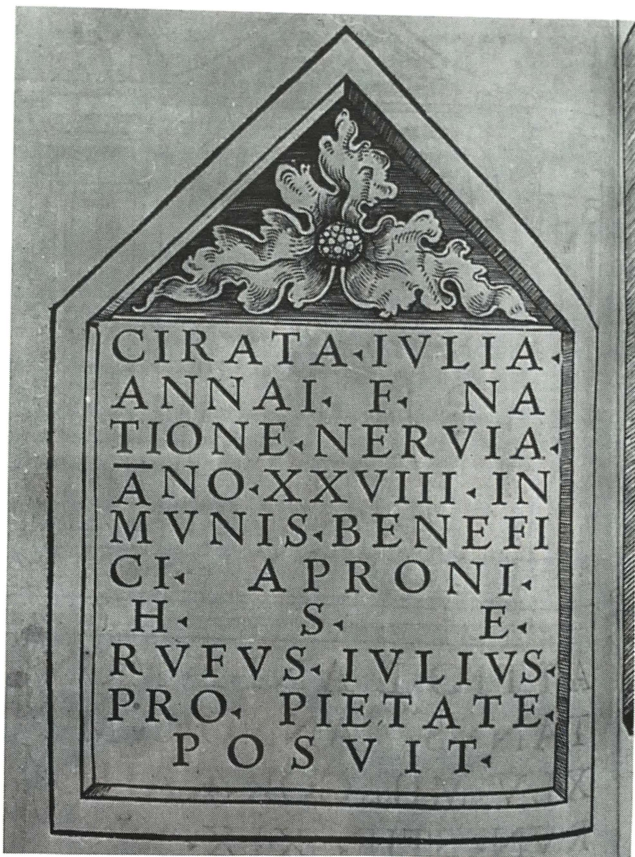 CIRATA·IVLIA·
ANNAI· F· NA
TIONE·NERVIA·
A̅NO·XXVIII·IN
MVNIS·BENEFI
CI· APRONI·
H· S· E·
RVFVS·IVLIVS·
PRO· PIETATE·
POSVIT·